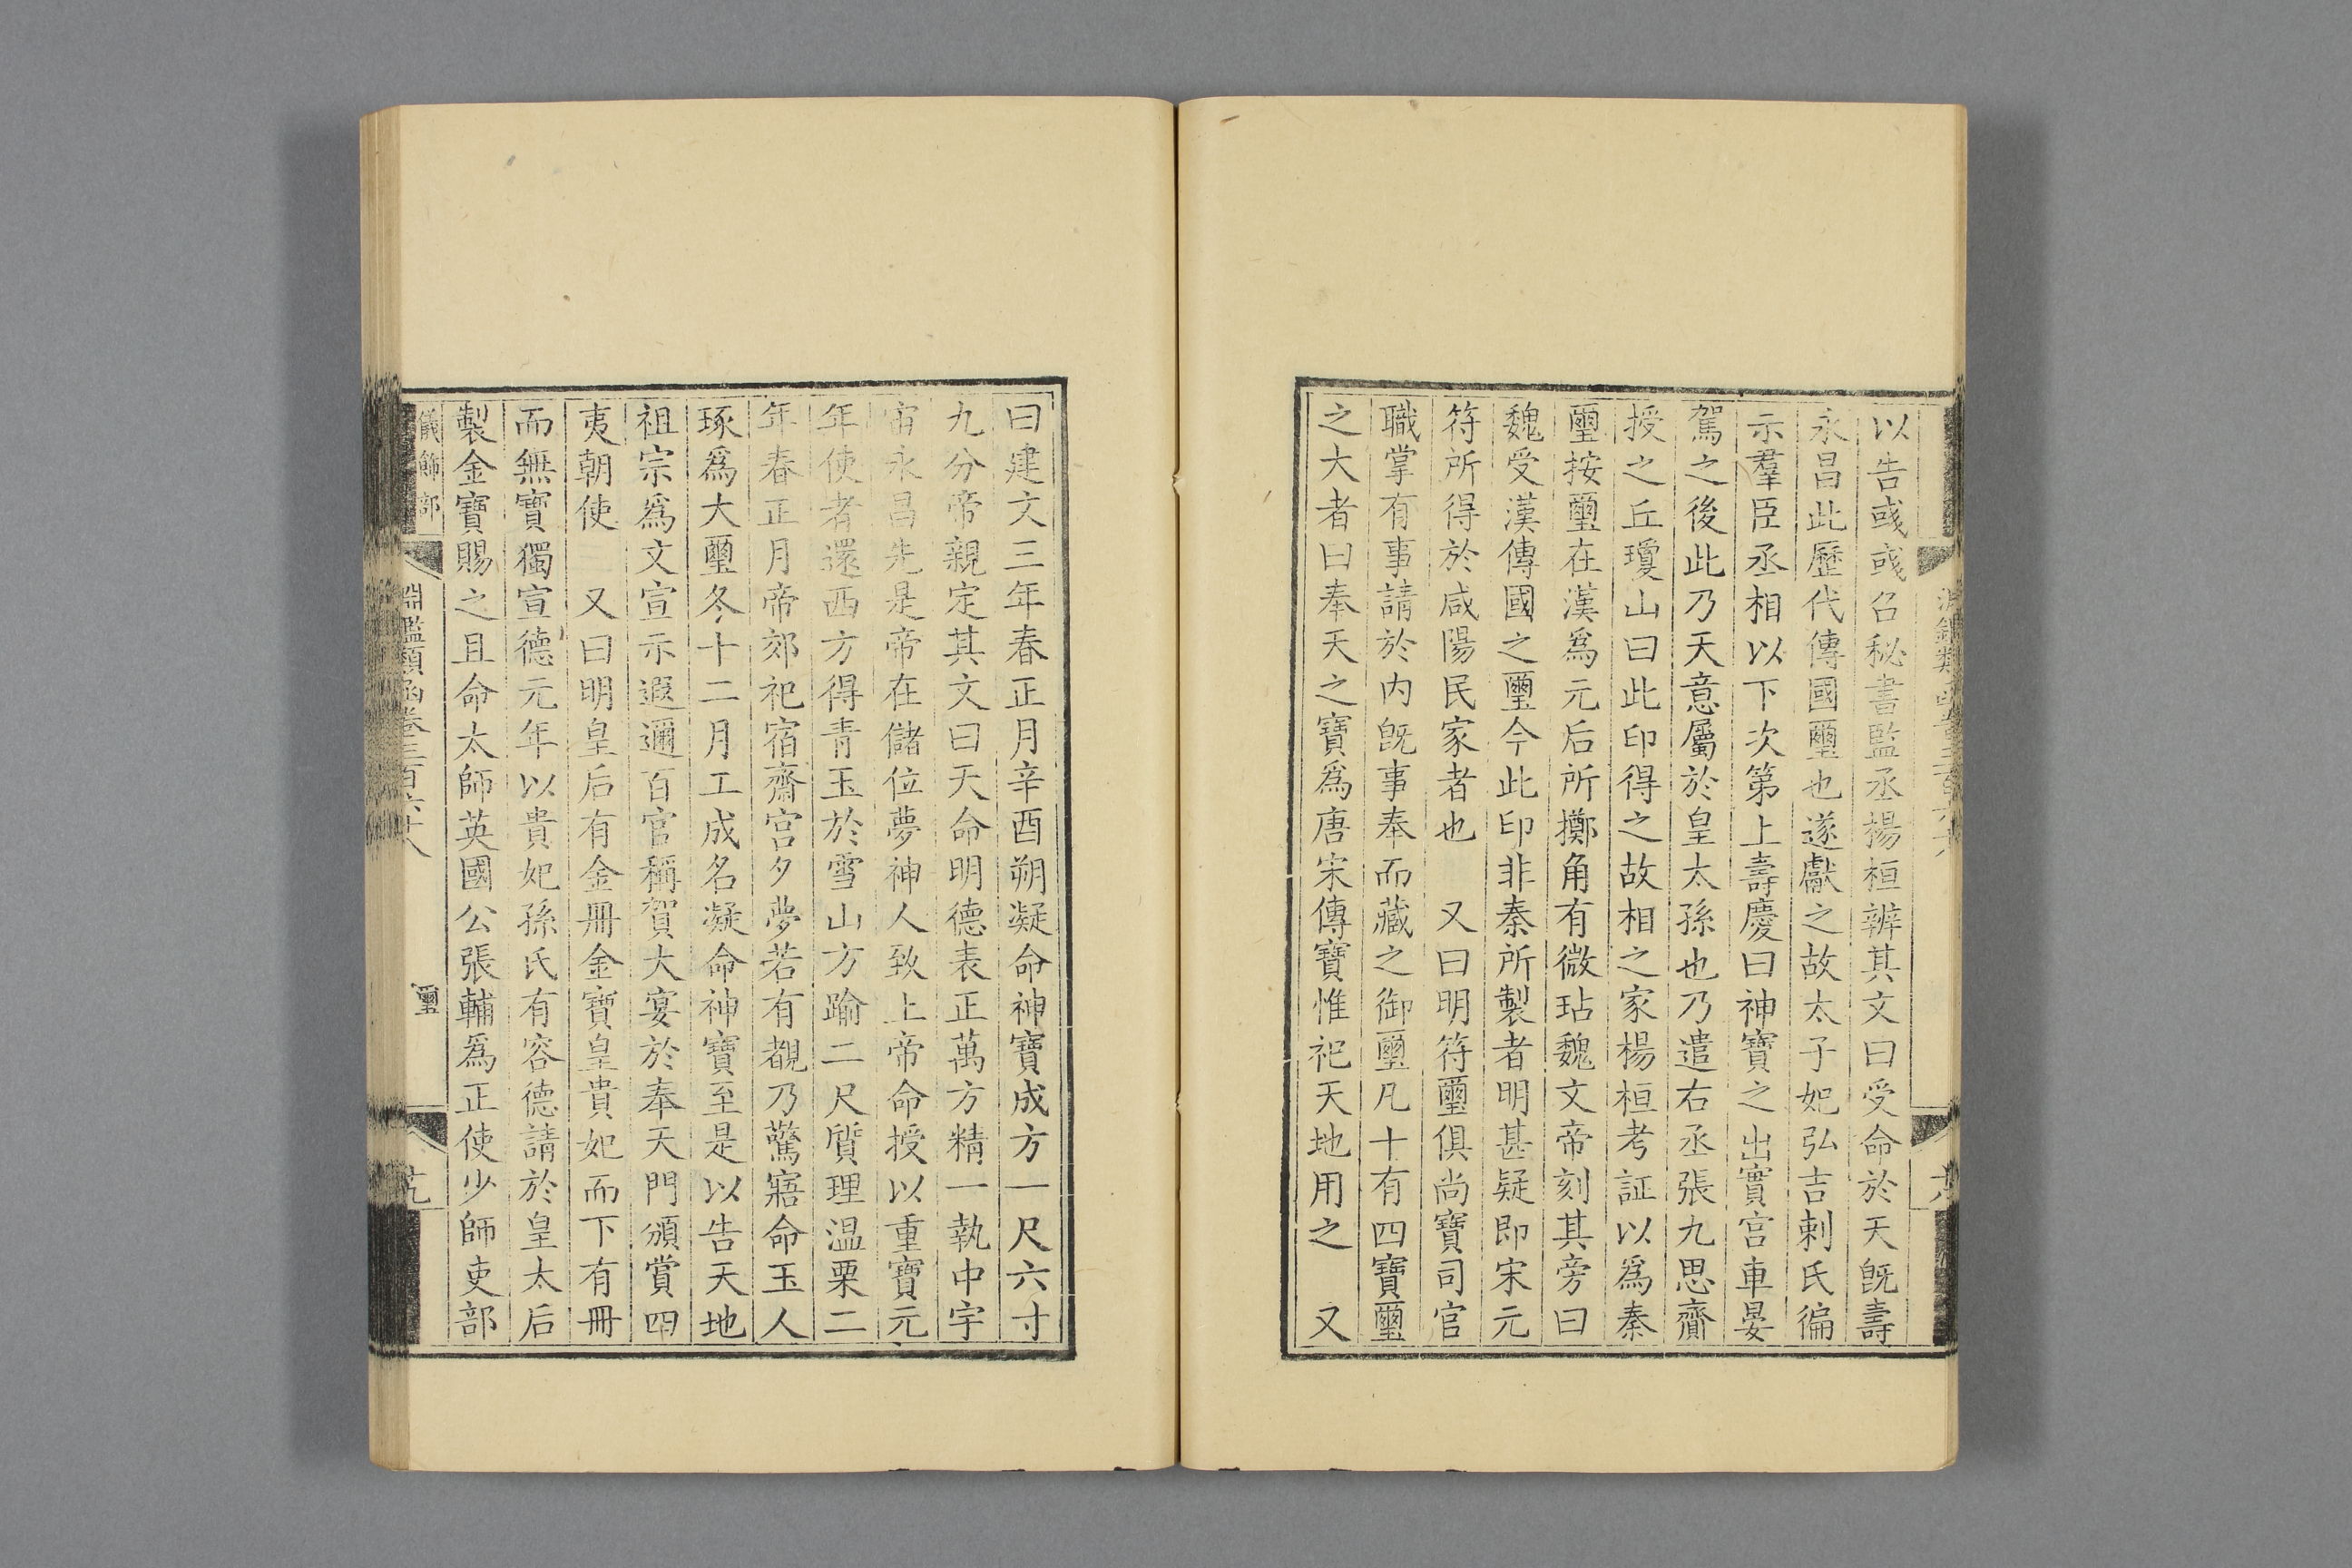 以告彧彧召秘書監丞楊桓辨其文曰受命於天既壽
永昌此歷代傳國璽也遂獻之故太子妃弘吉剌氏徧
示羣臣丞相以下次第上壽慶曰神寶之出實宮車晏
駕之後此乃天意屬於皇太孫也乃遣右丞張九思齎
授之丘瓊山曰此印得之故相之家楊桓考証以為秦
璽按璽在漢爲元后所擲角有微玷魏文帝刻其旁曰
魏受漢傳國之璽今此印非秦所製者明甚疑即宋元
符所得於咸陽民家者也　又曰明符璽俱尚寶司官
職掌有事請於内既事奉而藏之御璽凡十有四寶璽
之大者曰奉天之寶爲唐宋傳寶惟祀天地用之　又
曰建文三年春正月辛酉朔凝命神寶成方一尺六寸
九分帝親定其文曰天命明德表正萬方精一執中宇
宙永昌先是帝在儲位夢神人致上帝命授以重寶元
年使者還西方得青玉於雪山方踰二尺質理温栗二
年春正月帝郊祀宿齋宮夕夢若有覩乃驚寤命玉人
琢爲大璽冬十二月工成名凝命神寶至是以告天地
祖宗爲文宣示遐邇百官稱賀大宴於奉天門頒賞四
夷朝使　又曰明皇后有金冊金寶皇貴妃而下有冊
而無寶獨宣德元年以貴妃孫氏有容德請於皇太后
製金寶賜之且命太師英國公張輔爲正使少師吏部
儀飾部　淵鑑類函卷三百六十八　璽